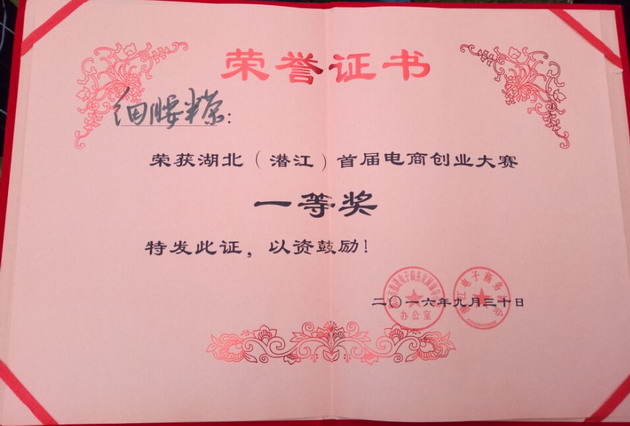 荣誉证书
细腰粽:
荣获湖北(潜江)首届电商创业大赛
一等奖
特发此证,以资鼓励!
二〇一六年九月三十日
办公室